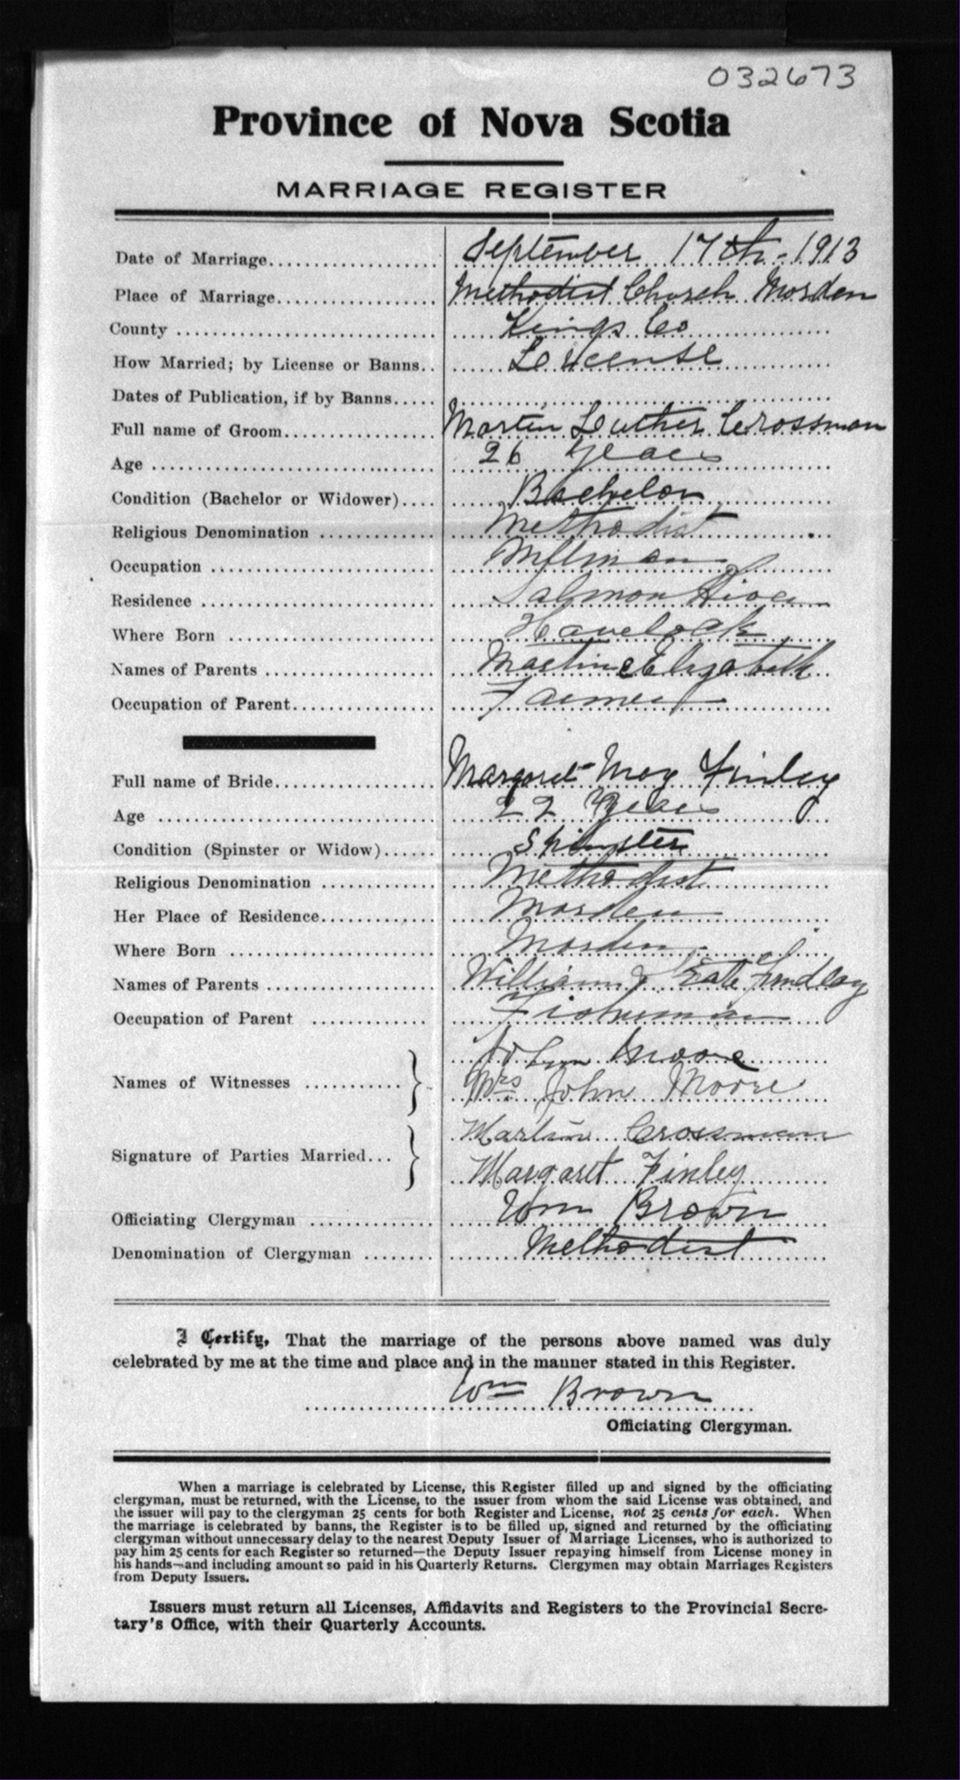 032673
Province of Nova Scotia
MARRIAGE REGISTER
Date of Marriage September 17th - 1913
Place of Marriage Methodist Church Morden
County Kings Co
How Married; by License or Banns License
Dates of Publication, if by Banns
Full name of Groom Martin Luther Crossman
Age 26 years
Condition (Bachelor or Widower) Bachelor
Religious Denomination Methodist
Occupation Millman
Residence Salmon River
Where Born Havelock
Names of Parents Martin & Elizabeth
Occupation of Parent Farmer
Full name of Bride Margaret May Finley
Age 22 Years
Condition (Spinster or Widow) Spinster
Religious Denomination Methodist
Her Place of Residence Morden
Where Born Morden
Names of Parents William & Kate Findlay
Occupation of Parent Fisherman
Names of Witnesses John Moore
Mrs John Moore
Signature of Parties Married Martin Crossman
Margaret Finley
Officiating Clergyman Wm Brown
Denomination of Clergyman Methodist
I Certify, That the marriage of the persons above named was duly
celebrated by me at the time and place and in the manner stated in this Register.
Wm Brown
Officiating Clergyman.
When a marriage is celebrated by License, this Register filled up and signed by the officiating
clergyman, must be returned, with the License, to the issuer from whom the said License was obtained, and
the issuer will pay to the clergyman 25 cents for both Register and License, not 25 cents for each. When
the marriage is celebrated by banns, the Register is to be filled up, signed and returned by the officiating
clergyman without unnecessary delay to the nearest Deputy Issuer of Marriage Licenses, who is authorized to
pay him 25 cents for each Register so returned—the Deputy Issuer repaying himself from License money in
his hands—and including amount so paid in his Quarterly Returns. Clergymen may obtain Marriages Registers
from Deputy Issuers.
Issuers must return all Licenses, Affidavits and Registers to the Provincial Secre-
tary's Office, with their Quarterly Accounts.